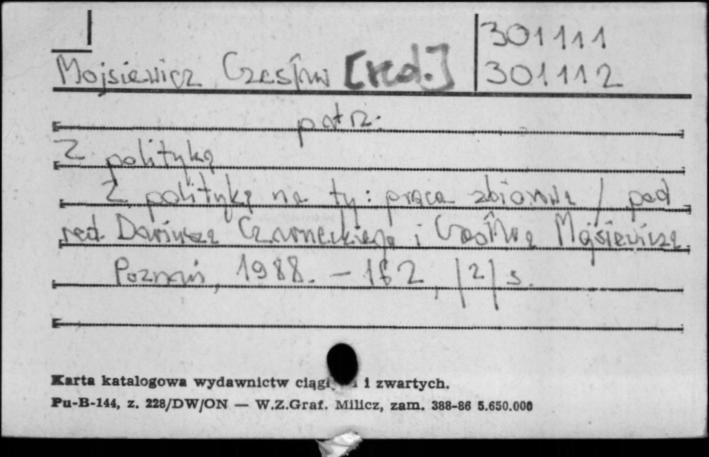 301111
Mojsiewicz Czesław [red.] 301112
patrz:
Z polityką
Z polityką na ty: praca zbiorowa / pod
red. Dariusza Czarneckiego i Czesława Mojsiewicza.
Poznań, 1988. - 162, |2| s.
Karta katalogowa wydawnictw ciągł i zwartych.
Pu-B-144, z. 228/DW/ON — W.Z.Graf. Milicz, zam. 388-86 5.650.000